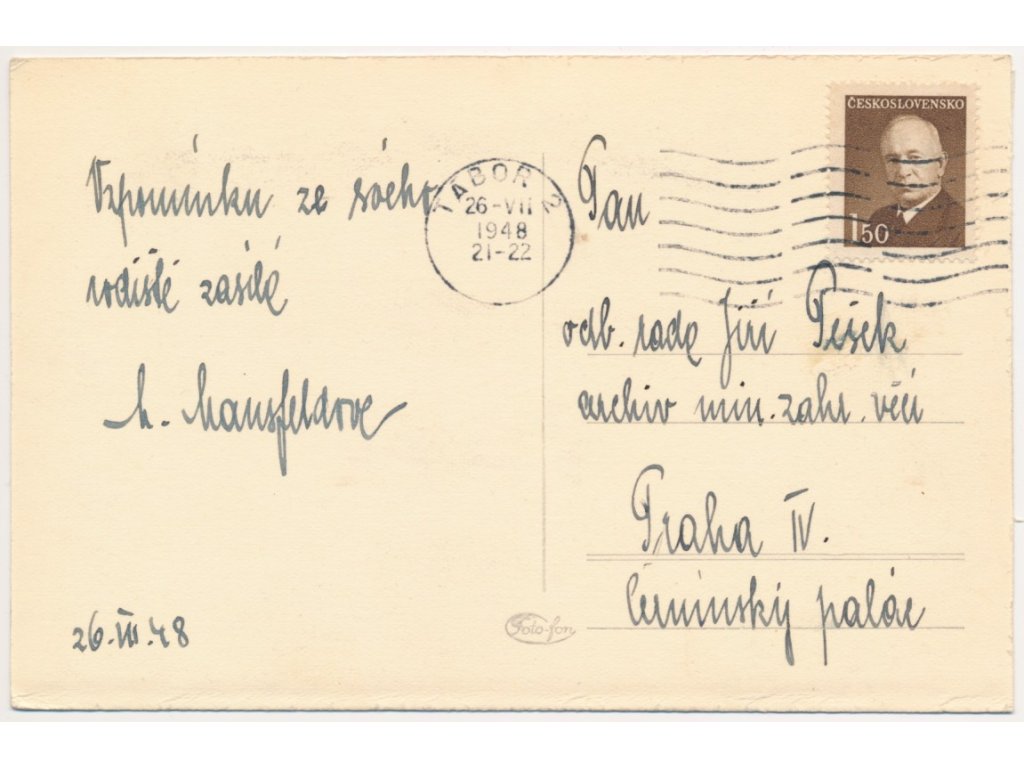 Vzpomínku ze svého
rodiště zasílá
M. Mansfeldova
26.VII.48
TÁBOR 2
26-VII
1948
21-22
ČESKOSLOVENSKO
1 50
Pan
odb. rada Jiří Pešek
archiv min. zahr. věcí
Praha IV.
Černínský palác
Foto-fon